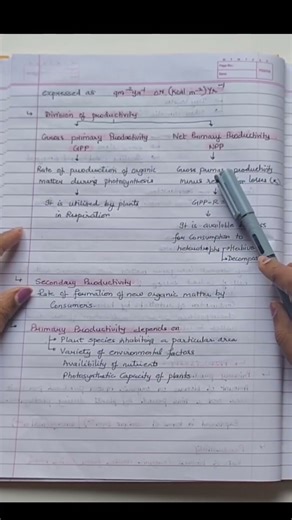 expressed as gm⁻²yr⁻¹ or (Kcal m⁻²) yr⁻¹
Division of productivity
Gross primary Productivity Net Primary Productivity
GPP NPP
Rate of production of organic Gross primary productivity
matter during photosynthesis minus losses
It is utilized by plants GPP-R
in Respiration
It is available
for Consumption to
Secondary Productivity
Rate of formation of new organic matter by
Consumers.
Primary Productivity depends on
Plant species inhabiting a particular area
Variety of environmental factors
Availibility of nutrients
Photosynthetic Capacity of plants